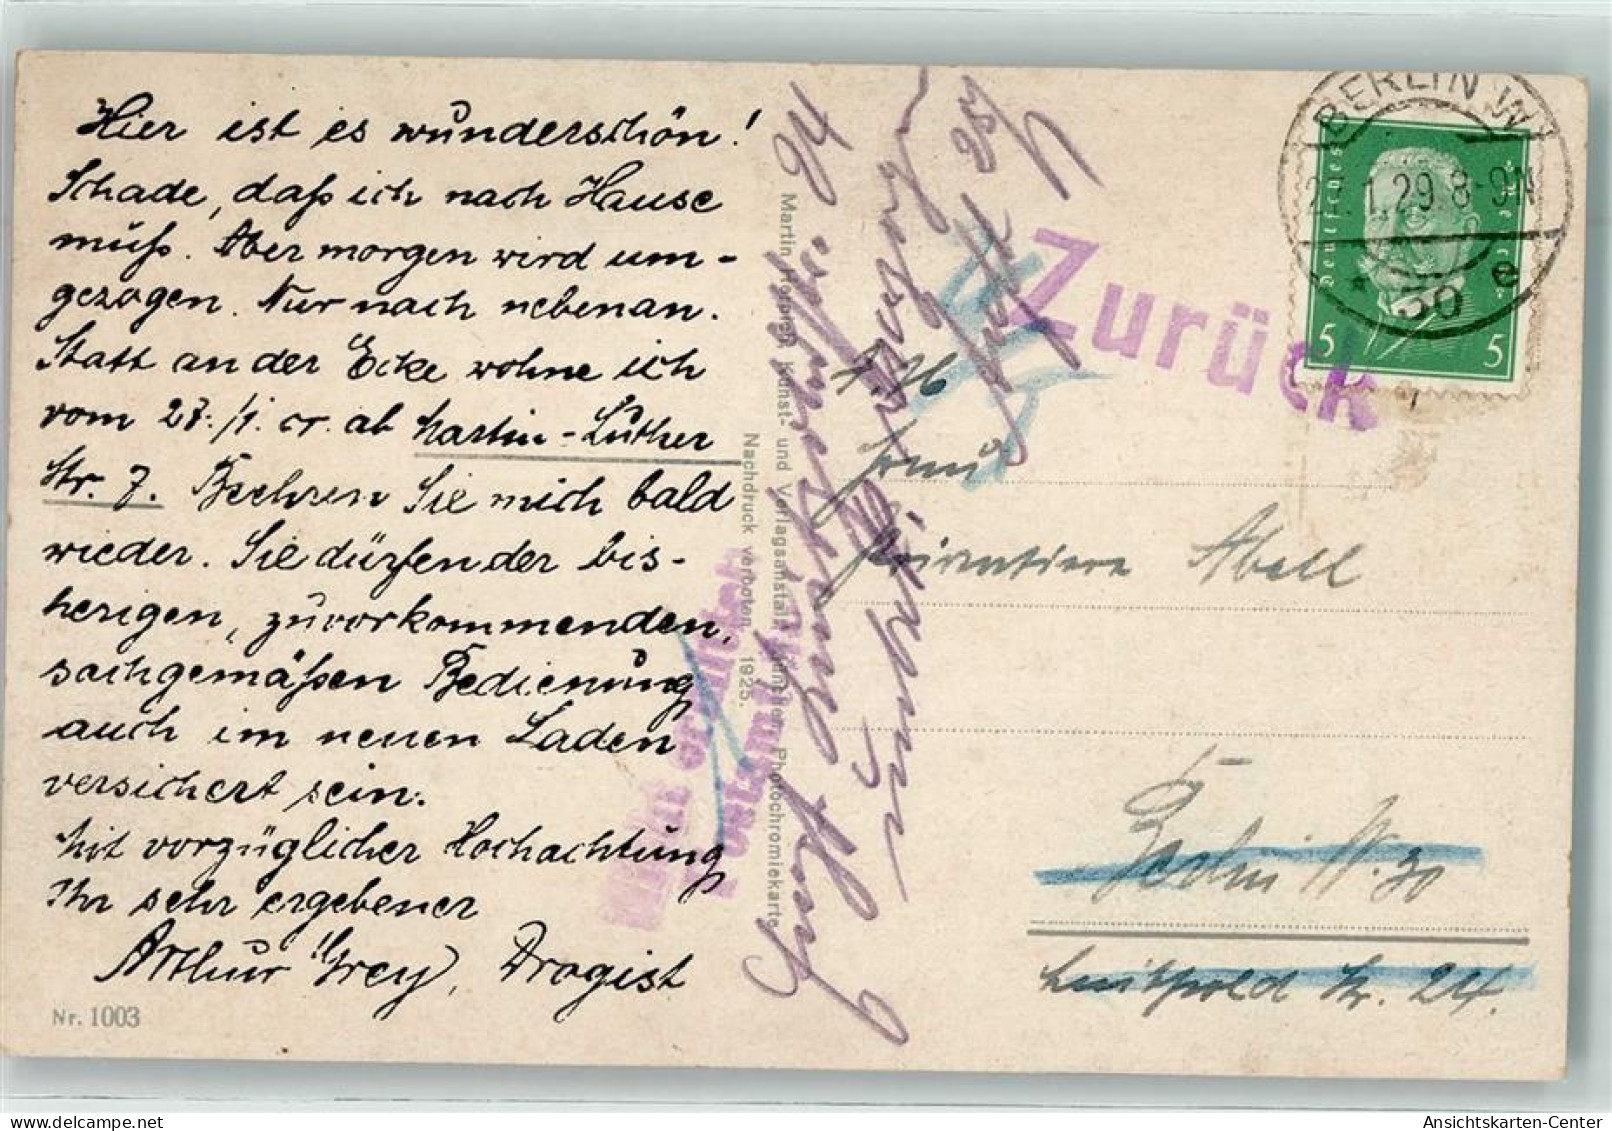 Hier ist es wunderschön!
Schade, daß ich nach Hause
muß. Aber morgen wird um-
gezogen. Nur nach nebenan.
Statt an der Ecke wohne ich
vom 27./1. cr. ab Martin-Luther
Str. 7. Beehren Sie mich bald
wieder. Sie dürfen der bis-
herigen, zuvorkommenden,
sachgemäßen Bedienung
auch im neuen Laden
versichert sein.
Mit vorzüglicher Hochachtung
Ihr sehr ergebener
Arthur Grey, Drogist
Nr. 1003
Kunst- und Verlagsanstalt, München. Photochromiekarte
Nachdruck verboten. 1925.
Postamt
Zurück
BERLIN W
1.29 8-9N
30 e
Deutsches
5 5
Frau
Abell
Berlin W. 30
Luitpold Str. 24.
Ansichtskarten-Center